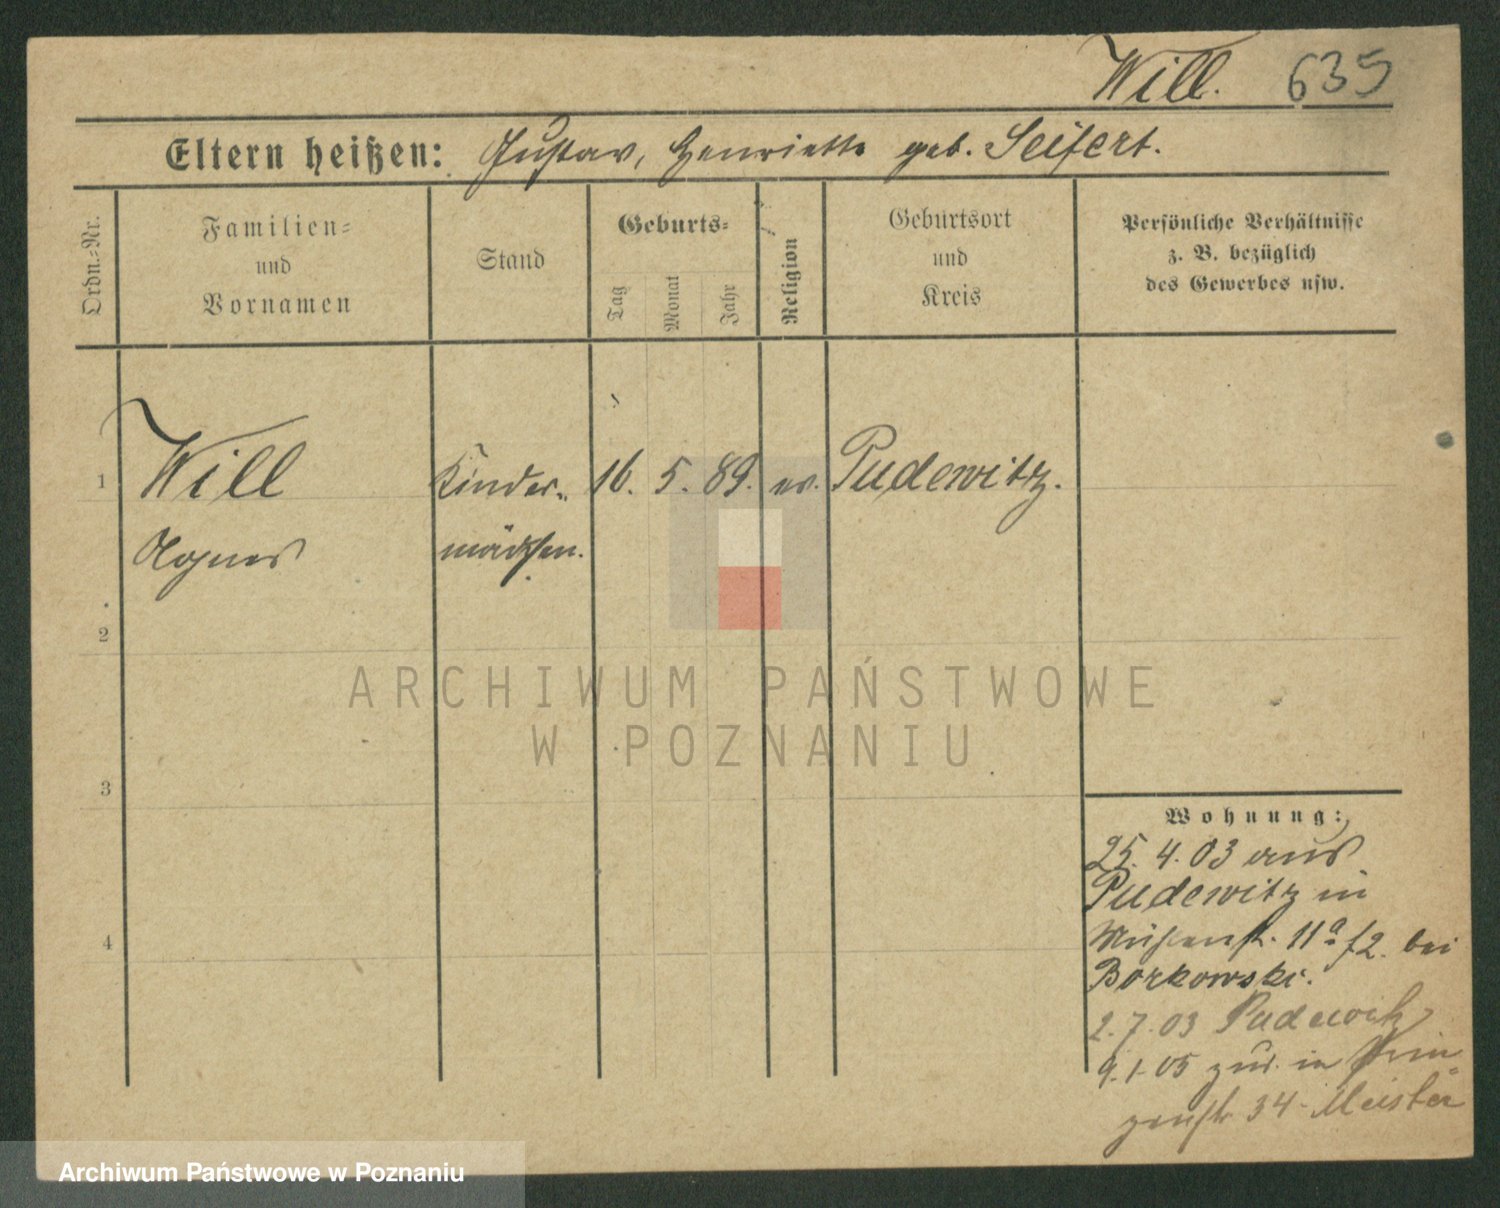 Will. 635
Eltern heißen: Gustav, Henriette geb. Seifert.
Ordn.-Nr.
Familien-
und
Vornamen
Stand
Geburts-
Tag
Monat
Jahr
Religion
Geburtsort
und
Kreis
Persönliche Verhältnisse
z. B. bezüglich
des Gewerbes usw.
1 Will Kinder- 16. 5. 89. ev. Pudewitz.
Agnes mädchen.
2
3
4
ARCHIWUM PAŃSTWOWE
W POZNANIU
Wohnung:
25. 4. 03 aus
Pudewitz in
Mühlenstr. 11a f2. bei
Borkowski.
2. 7. 03 Pudewitz
9. 1. 05 zur. in Prin
zenstr 34 Meister
Archiwum Państwowe w Poznaniu